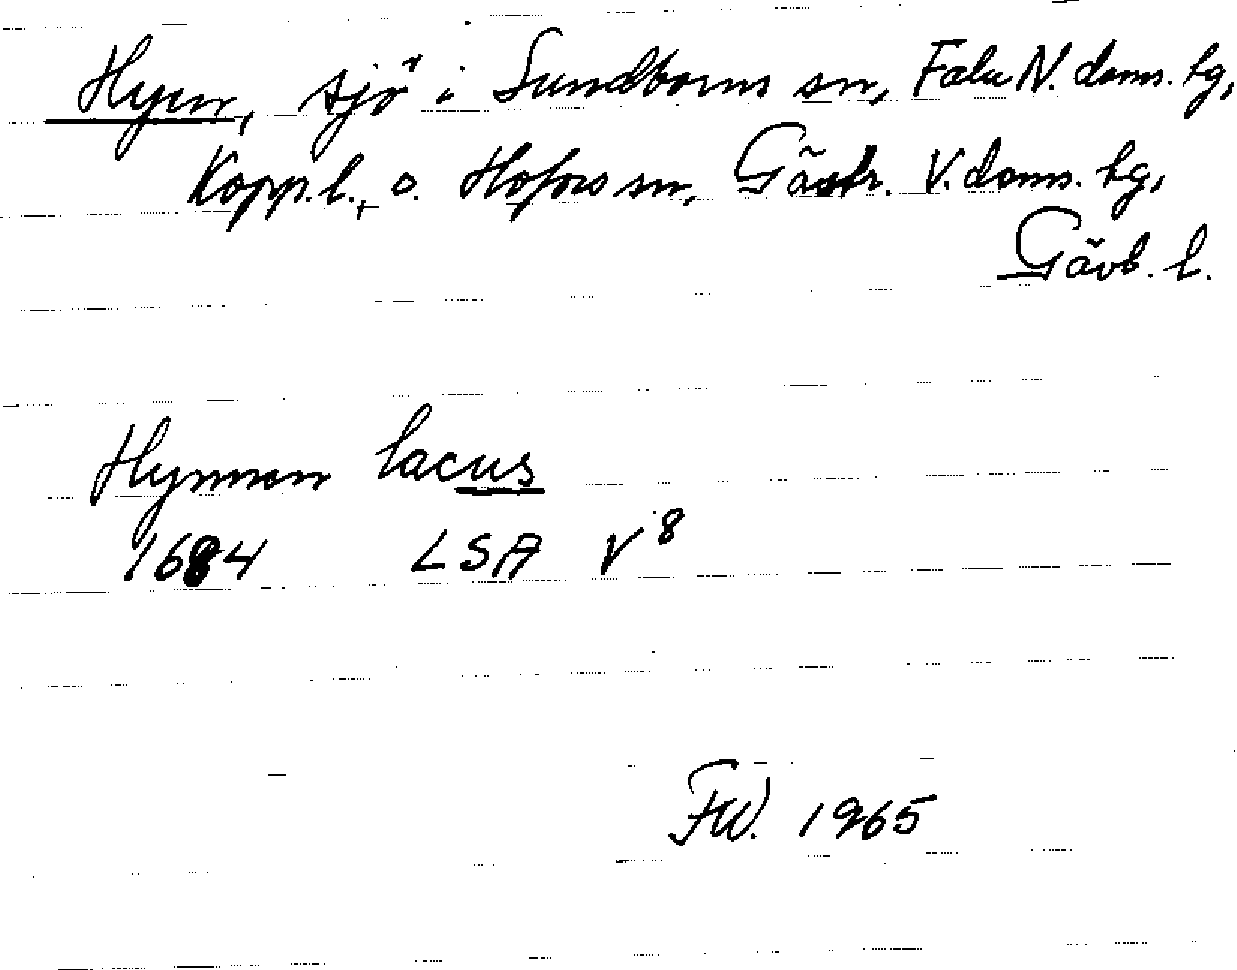 Hyen, sjö i Sundborns sn, Falu N. doms. hg,
Kopp. l., o. Hofors sn, Gästr. V. doms. hg,
Gävb. l.
Hynnen lacus
1684 LSA V 8
FW. 1965